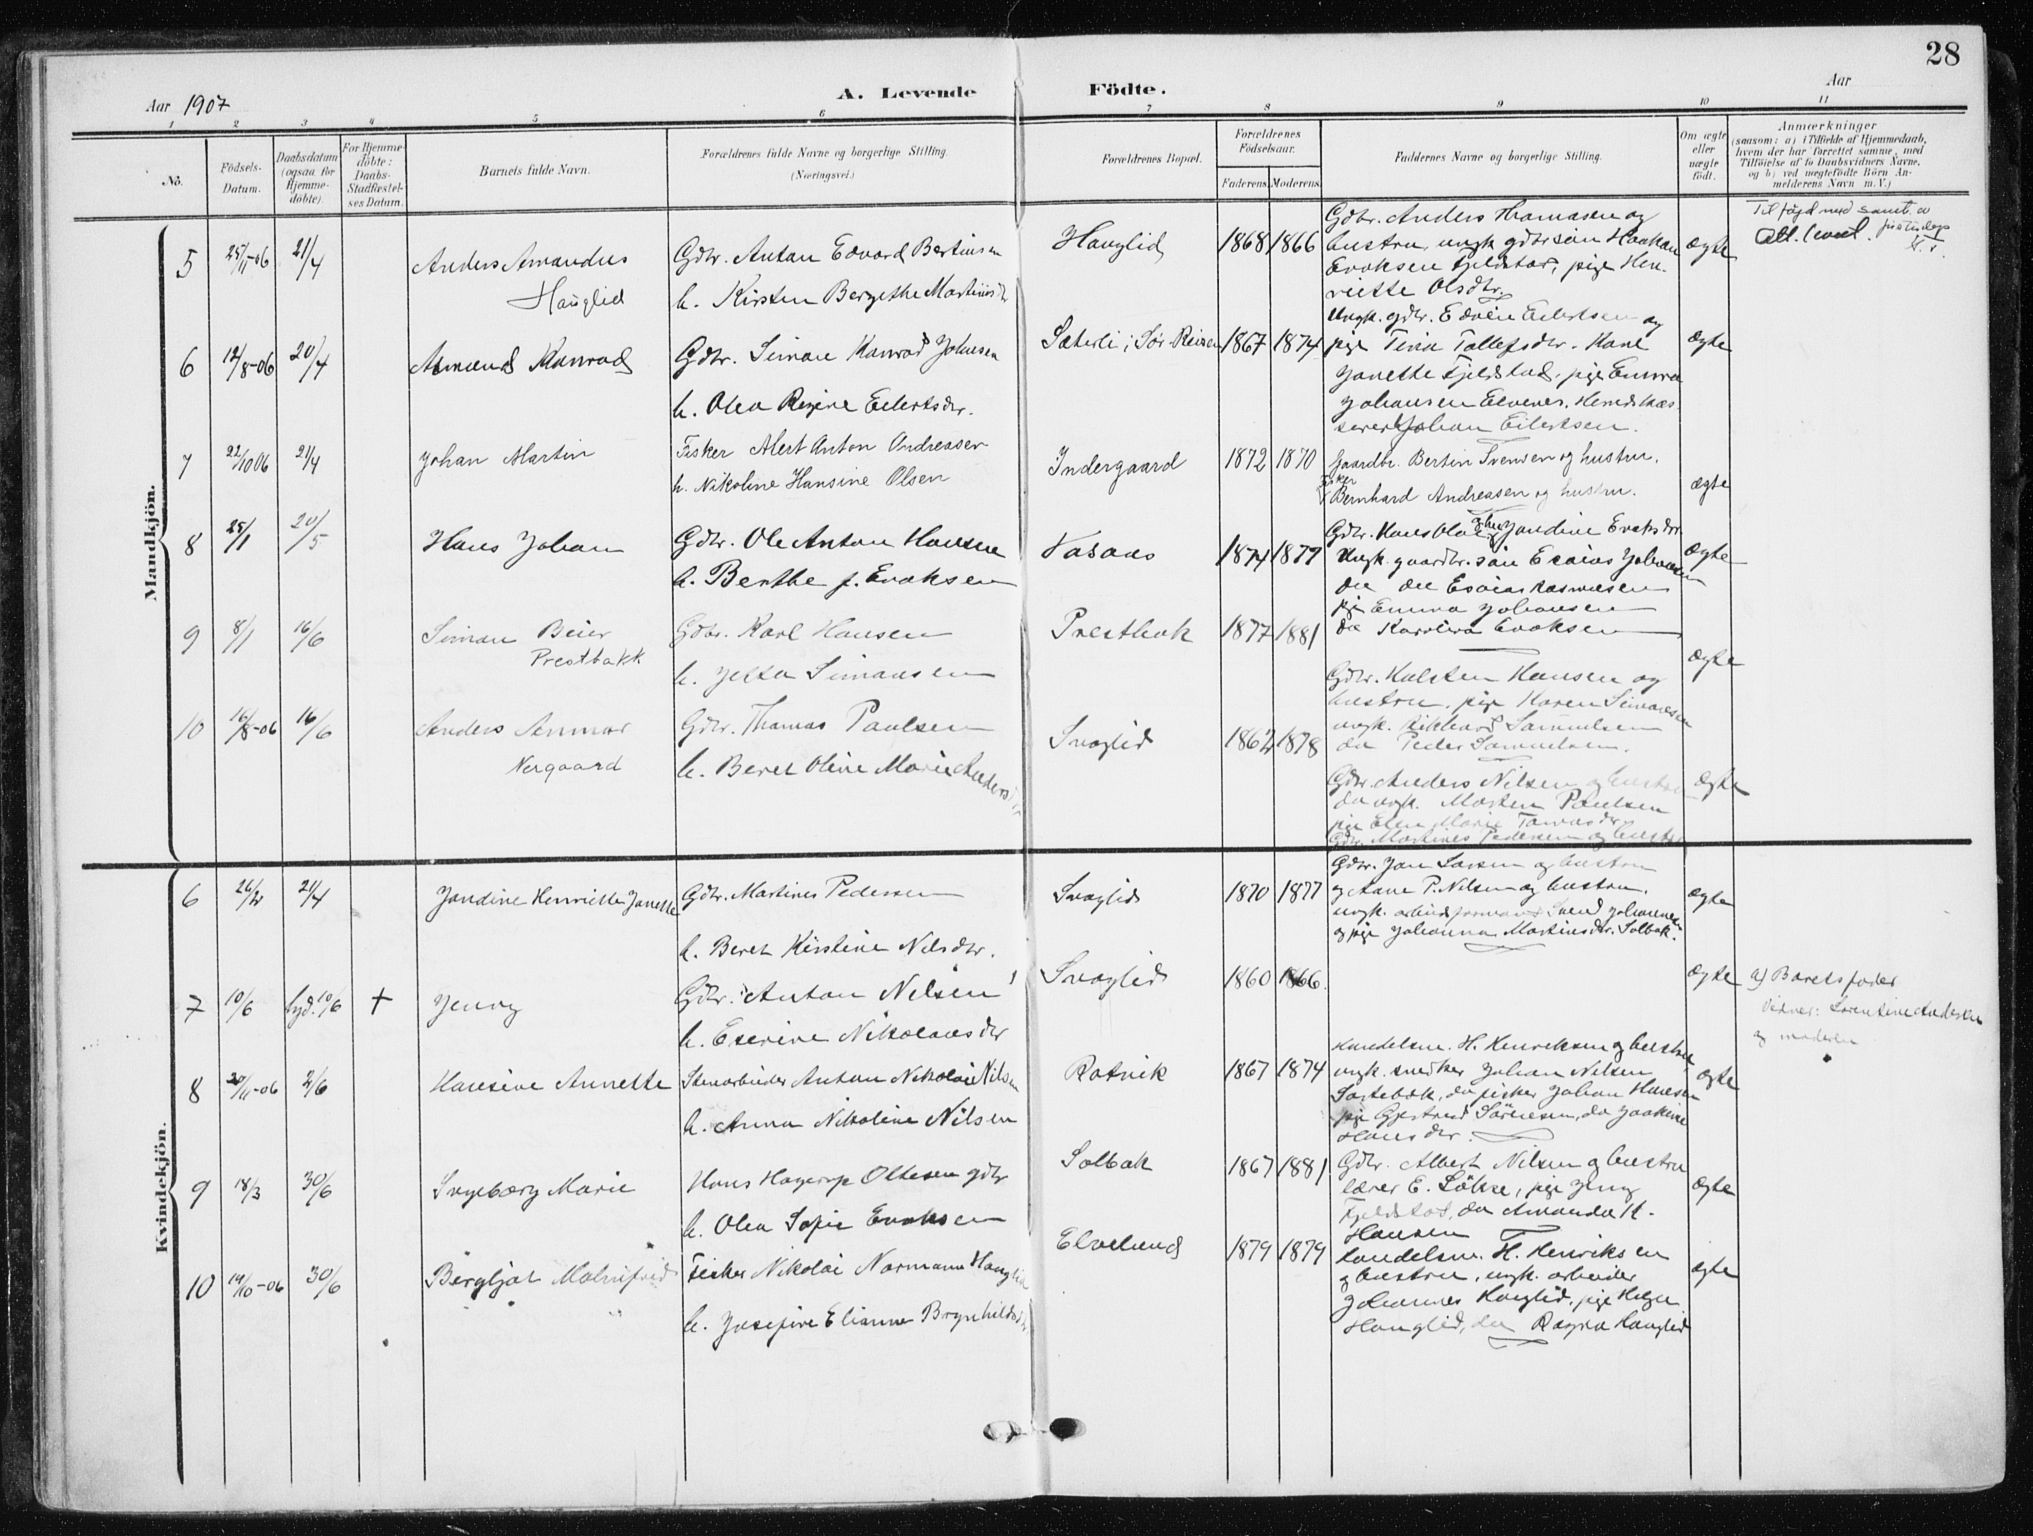 28
Aar 1907
A. Levende Födte.
Aar
1 2 3 4 5 6 7 8 9 10 11
No.
Födsels-Datum.
Daabsdatum (ogsaa for Hjemmedöbte).
For Hjemmedöbte: Daabs-Stadfæstelses Datum.
Barnets fulde Navn.
Forældrenes fulde Navne og borgerlige Stilling. (Næringsvei.)
Forældrenes Bopæl.
Forældrenes Födselsaar.
Faderens. Moderens.
Faddernes Navne og borgerlige Stilling.
Om ægte eller uægte födt.
Anmærkninger
(saasom: a) i Tilfælde af Hjemmedaab, hvem der har forrettet samme, med Tilföielse af to Daabsvidners Navne, og b) ved uægtefödte Börn Anmelderens Navn m. V.)
Mandkjön.
5 25/11-06 21/4 Anders Amandus Hauglid
Gdbr. Anton Edvard Bertinsen
h. Kirsten Bergethe Martinsdtr
Hauglid 1868 1866
Gdbr. Anders Thomasen og
hustru, ungk. gdbrsøn Haakon
Evoksen Fjeldstad, pige Hen-
riette Olsdtr.
ægte
Til føjd med samt. a
6 12/8-06 20/4 Amand Konrad
Gdbr. Simon Konrad Johnsen
h. Olea Regine Eilertsdtr.
Sæterli i Sör-Reisen 1867 1874
Ungk. gdbr. Edvin Eilertsen og
pige Tina Tollefsdtr. Kone
Janette Fjeldstad, pige Emma
Johansen Elvenes, Herredskas-
serer Johan Eilertsen.
ægte
7 22/10 06 21/4 Johan Martin
Fisker Alert Anton Andreasen
h. Nikoline Hansine Olsen
Indergaard 1872 1870
Gaardbr. Bertin Svensen og hustru.
Fisker Bernhard Andreasen og hustru.
ægte
8 25/1 20/5 Hans Johan
Gdbr. Ole Anton Hansen
h. Berthe f. Evoksen
Vasaas 1874 1879
Gdbr. Hans Olai og hu Jandine Evoksdtr.
Ungk. gaardbr. søn Esaias Johansen
do do Esaias Rasmusen
pige Emma Johansen
do Karoline Evoksen
ægte
9 8/1 16/6 Simon Beier Prestbakk
Gdbr. Karl Hansen
h. Jetta Simonsen
Prestbak 1877 1881
Gdbr. Kalsten Hansen og
hustru, pige Karen Simonsen
ungk. Rikhard Samuelsen
do Peder Samuelsen.
ægte
10 16/8-06 16/6 Anders Anmar Nergaard
Gdbr. Thomas Paulsen
h. Beret Oline Marie Anders
Svaglid 1862 1878
Gdbr. Anders Nilsen og hustru
do ungk. Morten Paulsen
pige Elen Marie Tomasdtr
Gdbr. Martines Pedersen og hustru
ægte
Kvindekjön.
6 26/2 21/4 Jandine Henriette Janette
Gdbr. Martines Pedersen
h. Beret Kirstine Nilsdtr.
Svaglid 1870 1877
Gdbr. Jon Larsen og hustru
og Aane P. Nilsen og hustru.
ungk. arbeidsformand Svend Johannesen
og pige Johanna Martinsdtr. Solbak.
ægte
7 10/6 hjd. 10/6 + Jenny
Gdbr. Anton Nilsen
h. Eserine Nikolausdtr
Svaglid 1860 1866.
ægte
a) Barnets fader
Vidner: Lorentine Andersen
og moderen
8 30/11-06 2/6 Hansine Annette
Stenarbeider Anton Nikolai Nilsen
h. Anna Nikoline Nilsen
Rotvik 1867 1874
Handelsm. H. Henriksen og hustru,
ungk. snedker Johan Nilsen
Sortebak, do fisker Johan Hansen
pige Gjertrud Sörensen, do Joakine
Hansdtr.
ægte
9 18/3 30/6 Ingeborg Marie
Hans Hagerup Ottesen gdbr
h. Olea Sofie Evoksen
Solbak 1867 1881
Gdbr. Albert Nilsen og hustru
lærer E. Lökse, pige Jenny
Fjeldstad, do Amanda H.
Hansen
ægte
10 14/10-06 30/6 Bergljot Malmfrid
Fisker Nikolai Normann Hauglid
h. Josefine Elianne Brynhildsdtr
Elvelund 1879 1879
Handelsm. H. Henriksen
og hustru, ungk. arbeider
Johannes Hauglid, pige Helga
Hauglid, do Ragna Hauglid
ægte